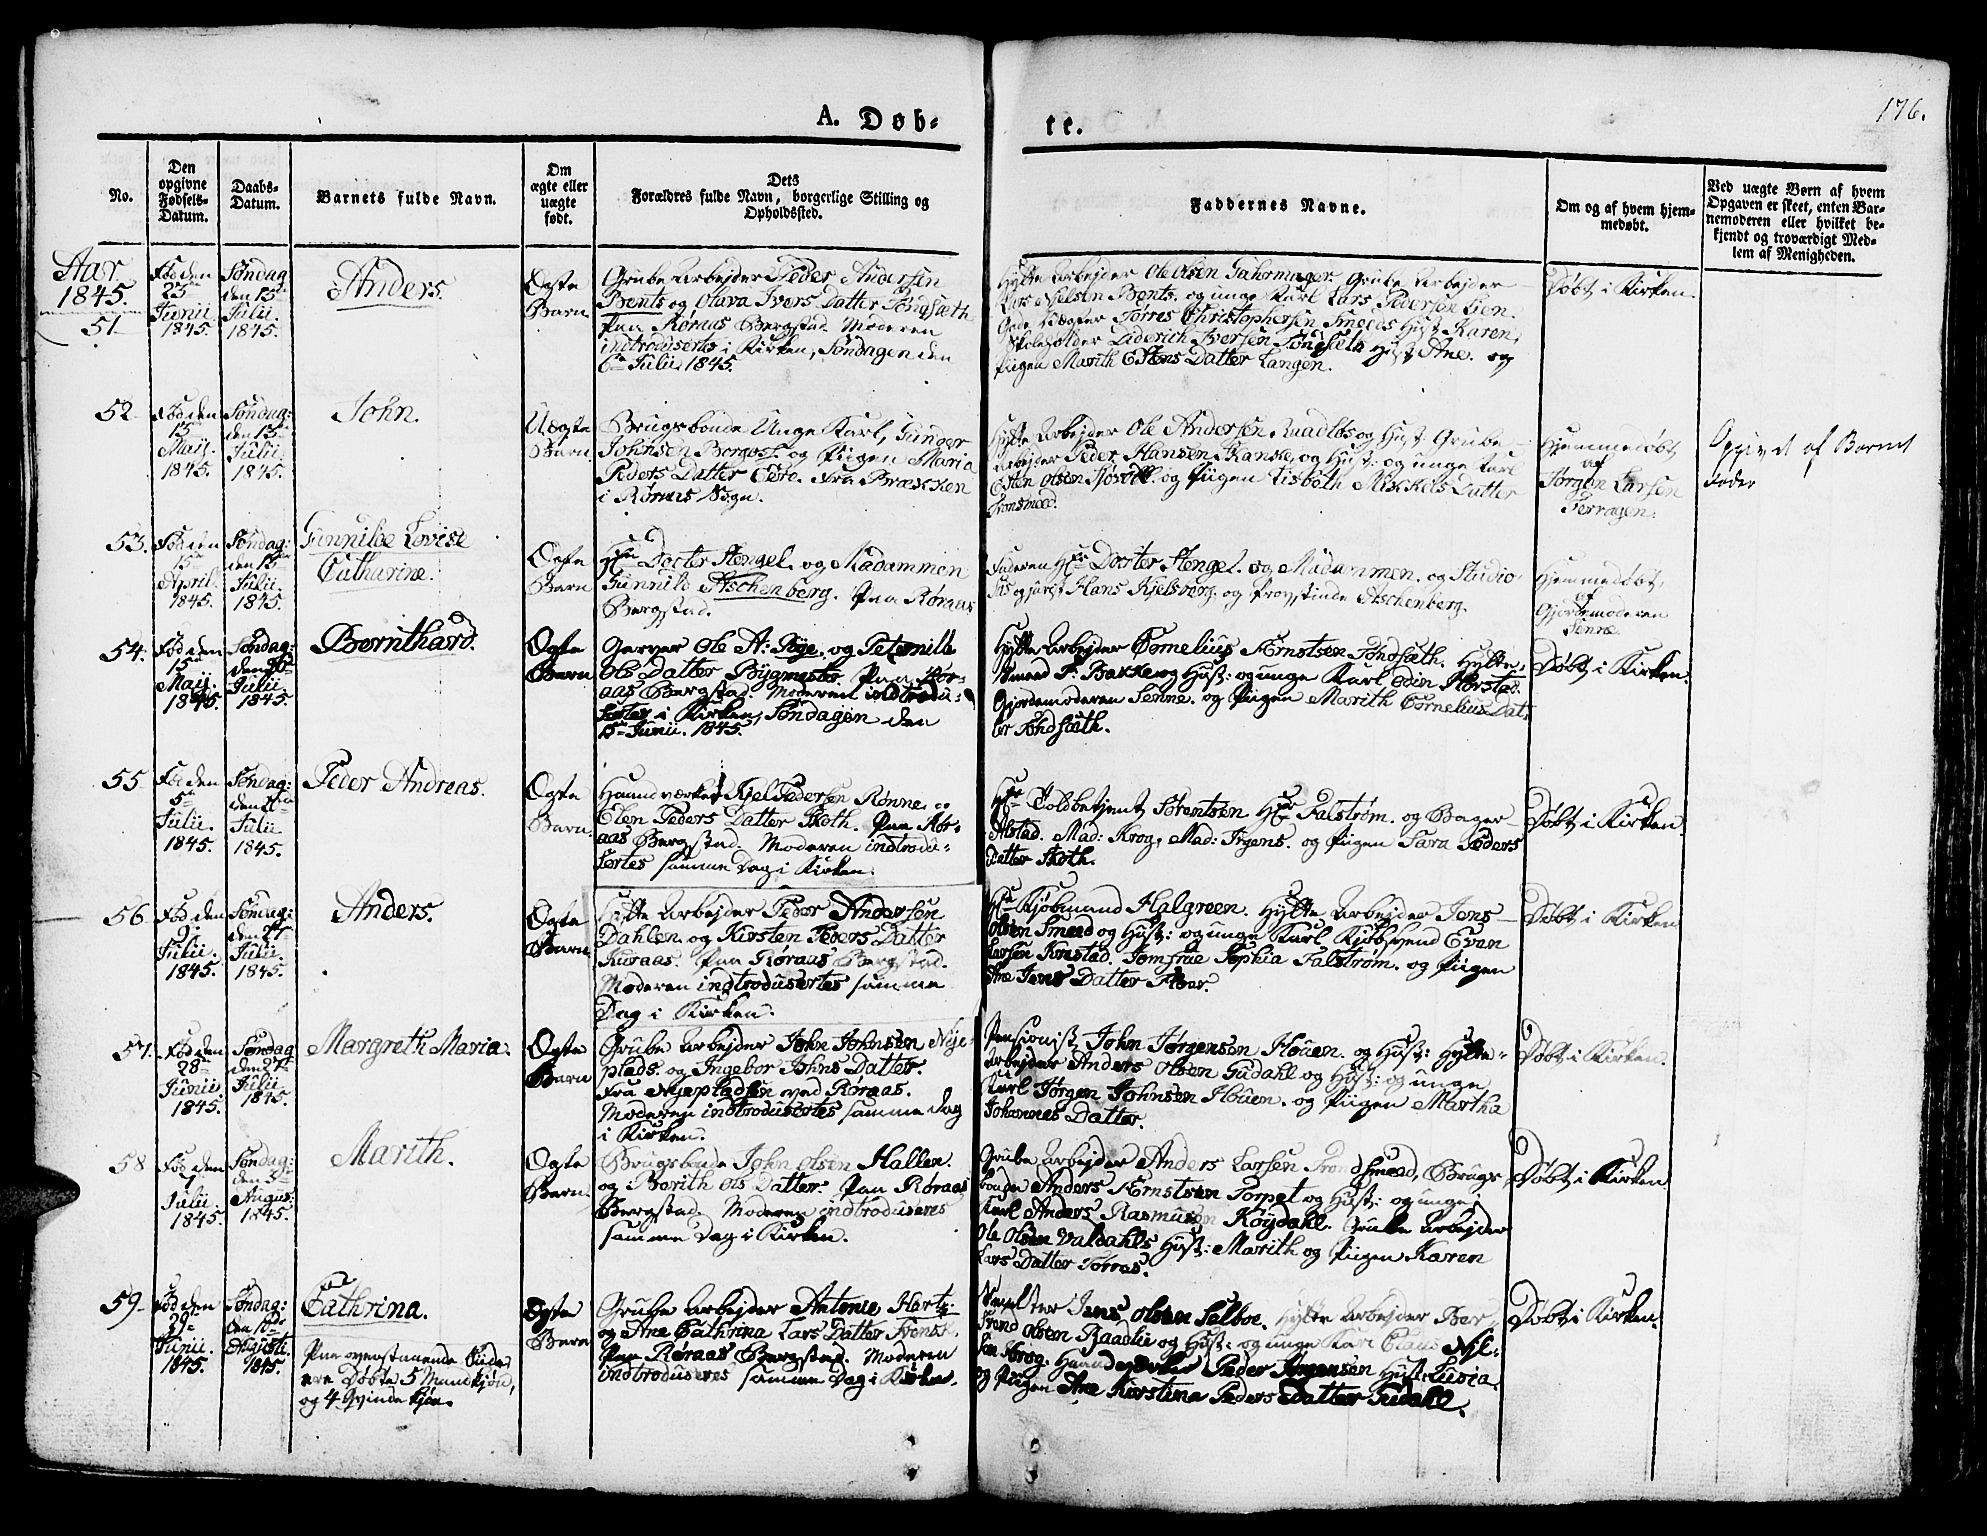 176.
A. Døb-
te.
No.
Den opgivne Fødsels-Datum.
Daabs-Datum.
Barnets fulde Navn.
Om ægte eller uægte født.
Dets Forældres fulde Navn, borgerlige Stilling og Opholdssted.
Faddernes Navne.
Om og af hvem hjem-medøbt.
Ved uægte Børn af hvem Opgaven er skeet, enten Bar-nemoderen eller hvilket be-kjendt og troværdigt Med-lem af Menigheden.
Aar
1845.
51.
Fød den
25de
Junii
1845.
Søndag
den 13de
Julii.
1845.
Anders.
Ægte
Barn
Grube Arbejder Peder Andersen
Brents og Olava Ivers Datter Tønsæth
Paa Røraas Bergstad. Moderen
indtroduserts i Kirken, Søndagen den
6te Julii 1845.
Hytte Arbejder Ole Olsen
Grube Arbejder
Lars Nielsen Brents. og unge Karl Lars Pedersen Lien.
Christophersen Smeds Hust: Karen,
Skoleholder Diderich Iversen Tønsæts Hust: Ane. og
Pigen Marith Estens Datter Langen.
Døbt i Kirken.
52.
Fød den
13de
Maij.
1845.
Søndag:
den 13de
Julii.
1845.
John.
Uægte
Barn.
Brugsbonde Unge Karl, Gunder
Johnsen Borgos. og Pigen Maria
Peders Datter Fra Brækken
i Røraas Sogn.
Hytte Arbejder Ole Andersen og Hust: Grube-
Arbejder Peder Hansen og Hust: og unge Karl
Esten Olsen og Pigen Lisbeth Mickels Datter
Tronsmed.
Hjemmedøbt
af
Jørgen Larsen
Ferragen.
Opgivet af Barnet
Fader
53.
Fød den
15de
April.
1845.
Søndag:
den 13de
Julii.
1845.
Gunnilde Lovise
Catharine.
Ægte
Barn
Hr Docter Stengel. og Madammen
Gunnild Aschenberg. Paa Røraas
Bergstad.
Faderen Hr Docter Stengel. og Madammen. og Studio-
sus Hans Hjelsberg. og Provstinde Aschenberg.
Hjemmedøbt,
af
Gjordemoderen
Senne.
54.
Fød den
15de
Maij
1845.
Søndag:
den
Julii.
1845.
Bernthard.
Ægte
Barn
Garver Ole A: og Peternille
Ols Datter Bygmester Paa Rør-
aas Bergstad. Moderen indtrodu-
sertes i Kirken, Søndagen den
15de Junii. 1845.
Hytte Arbejder Cornelius Ernstsen Tønsæth. Hytte-
Smed P: Bakke og Hust: og unge Karl Odin Harstad.
Gjordemoderen Senne. og Pigen Marith Cornelius Dat-
ter Tønsæth.
Døbt i Kirken.
55.
Fød den
5te
Julii.
1845.
Søndag:
den
Julii
1845.
Peder Andreas.
Ægte
Barn.
Haandværker Kjel Pedersen Rønne. og
Elen Peders Datter Skoth. Paa Rør-
aas Bergstad. Moderen indtrodu-
sertes samme Dag i Kirken.
Hr Toldbetjent Sørentsen. Hr Falstrøm. og Bager-
Alstad. Mad: Krog, Mad: Irgens. og Pigen Sara Peders
Datter Skoth.
Døbt i Kirken.
56.
Fød den
9de
Julii.
1845.
Søndag:
den 27de
Julii.
1845.
Anders.
Ægte
Barn
Hytte Arbejder Peder Andersen
Dahlen. og Kirsten Peders Datter
Kuraas. Paa Røraas Bergstad.
Moderen indtrodusertes samme
Dag i Kirken.
Hr Kjøbmand Halgreen. Hytte Arbejder Jens
Olsen Smed og Hust: og unge Karl Kjøbsvend Even
Larsen Jomfrue Sophia Falstrøm. og Pigen
Ane Jens Datter Floer.
Døbt i Kirken
57.
Fød den
28de
Junii
1845.
Søndag
den 27de
Julii
1845.
Margreth Maria.
Ægte
Barn
Grube Arbejder John Johnsen Nye-
plads. og Ingebor Johns Datter.
Fra Nyepladsen ved Røraas.
Moderen indtrodusertes samme Dag
i Kirken.
Pensionist John Jørgensen Houen. og Hust: Hytte-
Arbejder Anders Olsen Gudahl og Hust: og unge
Karl Jørgen Johnsen Houen. og Pigen Martha
Johannes Datter.
Døbt i Kirken.
58
Fød den
Julii
1845.
Søndag:
den 3de
Augus:
1845.
Marith.
Ægte
Barn.
Brugsbonde John Olsen Hallen.
og Berith Ols Datter. Paa Røraas
Bergstad. Moderen indtroduseres
samme Dag i Kirken.
Grube Arbejder Anders Larsen Trondsmed, Brugs-
bonde Anders Ernstsen Torpet og Hust: og unge
Karl Anders Rasmusen Køydahl. Grube Arbejder
Ole Olsen Valdahls Hust: Marith og Pigen Karen
Lars Datter Torres.
Døbt i Kirken.
59.
Fød den
29de
Junii.
1845.
Søndag:
den 10de
Auguste
1845.
Cathrina.
Ægte
Barn.
Grube Arbejder Antonie Hartz.
og Ane Cathrina Lars Datter
Paa Røraas Bergstad. Moderen
indtroduseres samme Dag i Kirken.
Jens Olsen Selboe. Hytte Arbejder Ber-
Trond Olsen og Hust: og unge Karl Claus Niel-
sen Krog. Haandværker Peder Jørgensen Hust: Lusia.
og Pigen Ane Kirstina Peders Datter
Døbt i Kirken.
Paa overstaaende Side
ere Døbte 5 Mandkjøn,
og 4 Qvindekjøn.